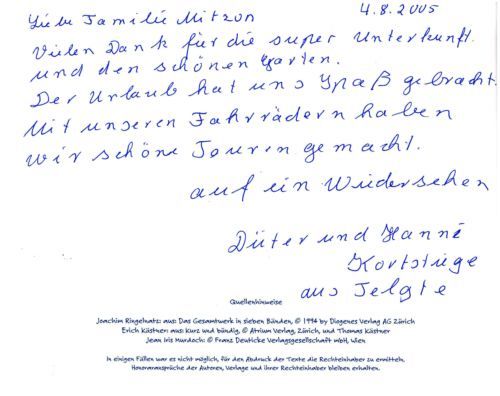 4.8.2005
Liebe Familie Mitzon
Vielen Dank für die super Unterkunft.
und den schönen Garten.
Der Urlaub hat uns Spaß gebracht.
Mit unseren Fahrrädern haben
wir schöne Touren gemacht.
auf ein Wiedersehen
Dieter und Hanne
Kortstiege
aus Telgte
Quellenhinweise
Joachim Ringelnatz: aus: Das Gesamtwerk in sieben Bänden, © 1994 by Diogenes Verlag AG Zürich
Erich Kästner: aus: Kurz und bündig, © Atrium Verlag, Zürich, und Thomas Kästner
Jean Iris Murdoch: © Franz Deuticke Verlagsgesellschaft mbH, Wien
In einigen Fällen war es nicht möglich, für den Abdruck der Texte die Rechteinhaber zu ermitteln.
Honoraransprüche der Autoren, Verlage und ihrer Rechteinhaber bleiben erhalten.